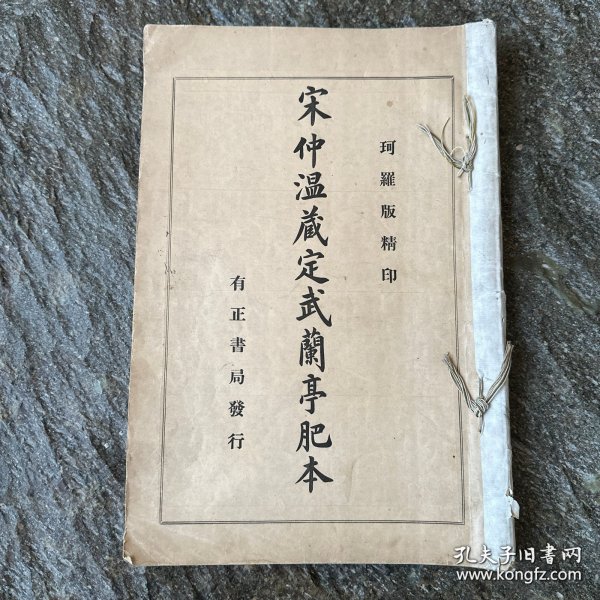 珂羅版精印
宋仲温藏定武蘭亭肥本
有正書局發行
孔夫子旧書网
www.kongfz.com